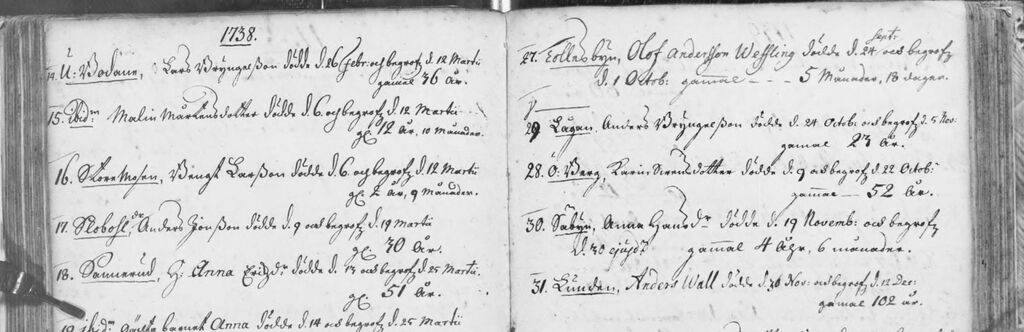 1738.
14. U: Bodane, Lars Bryngelsson dödde d. 26 Febr: och begrofz d. 12 Martii
gamal 36 År.
15. ibid.m Malin Mårtensdotter dödde d. 6. och begrofz d. 12 Martii
gl. 12 År, 10 månader.
16. Skoremosen, Bengt Larsson dödde d. 6. och begrofz d. 12 Martii
gl. 2 År, 9 Månader.
17. Anders Jonsson dödde d. 9 och begrofz d. 19 Martii
gl. 30 År.
18. Sannerud, H. Anna Erichzdr dödde d. 13 och begrofz d. 25 Martii.
gl. 51 År.
19. ibidm barnet Anna dödde d. 14 och begrofz d. 25 Martii
27. Tollesbyn, Olof Andersson Wessling dödde d. 24 Sept. och begrofz
d. 1 Octob: gammal - - - 5 Månader, 18 dagar.
29 Lågan. Anders Bryngelsson dödde d. 24 Octob: och begrofz d. 5 Nov:
gamal 23 År.
28. O: Berg, Karin Svensdotter dödde d. 9 och begrofz d. 22 Octob:
gammal 52 År.
30. Säbyn, Anna Hansdr dödde d. 19 Novemb: och begrofz
d. 30 ejusd: gammal 4 Åhr, 6 månader.
31. Lunden, Anders Wall dödde d. 30 Nov: och begrofz d. 12 Dec:
gamal 102 år.